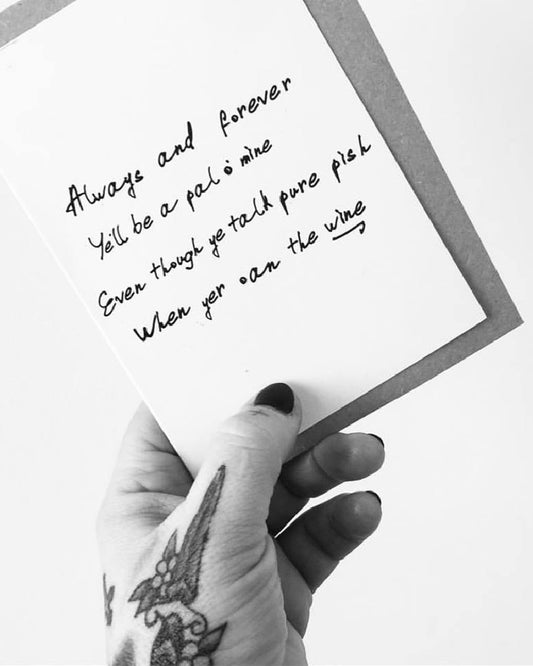 Always and forever
Ye'll be a pal o' mine
Even though ye talk pure pish
When yer oan the wine